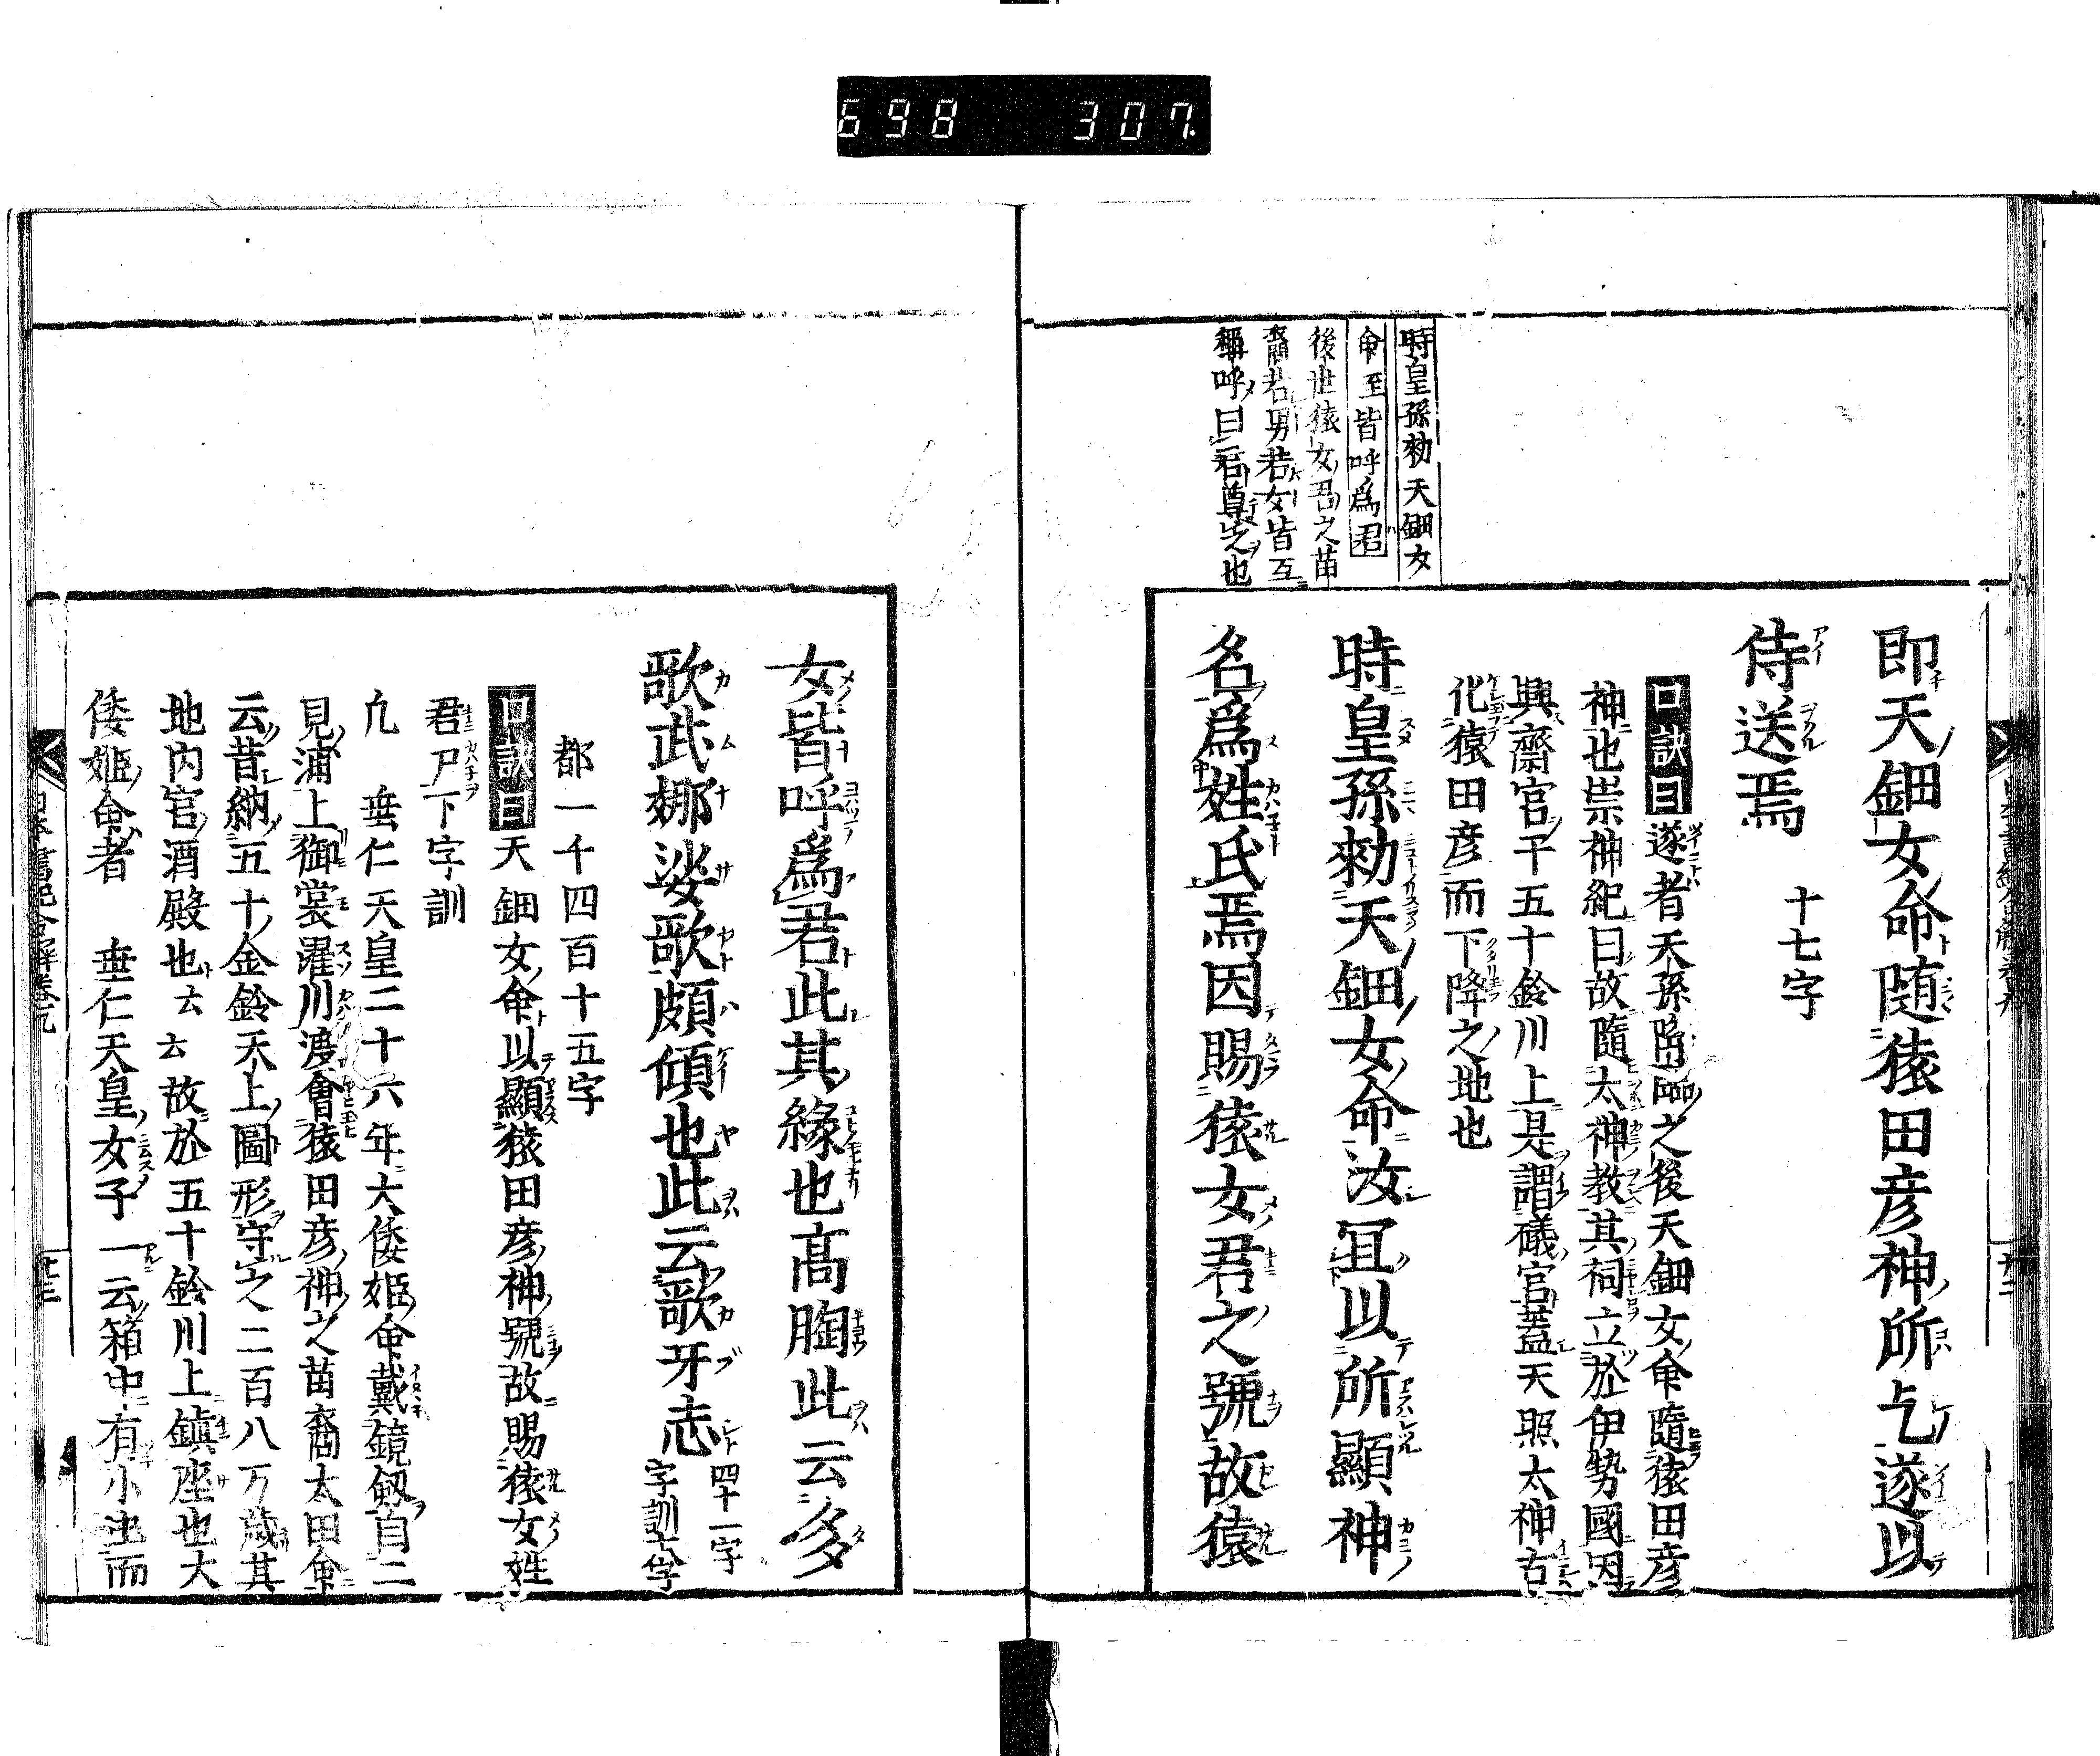 698 307.
時皇孫勅天鈿女
命至皆呼爲君
後世猿女君之苗
裔若男若女皆互
稱呼曰君尊之也
即天鈿女命随猿田彦神所乞遂以
侍送焉 十七字
口訣曰遂者天孫降臨之後天鈿女命隨猿田彦
神也崇神紀曰故隨太神教其祠立於伊勢國因
興齋宮于五十鈴川上是謂礒宮蓋天照太神古
化猿田彦而下降之地也
時皇孫勅天鈿女命汝冝以所顯神
名爲姓氏焉因賜猿女君之號故猿
女皆呼爲君此其緣也髙胸此云多
歌武娜娑歌頗傾也此云歌牙志 四十一字
字訓六字
都一千四百十五字
口訣曰天鈿女命以顯猿田彦神號故賜猿女姓
君尸下字訓
凢 垂仁天皇二十六年大倭姫命戴鏡劔自二
見浦上御裳濯川渡會猿田彦神之苗裔太田命
云昔納五十金鈴天上圖形守之二百八万歳其
地内宮酒殿也云云故於五十鈴川上鎮座也大
倭姫命者 垂仁天皇女子一云箱中有小虫而